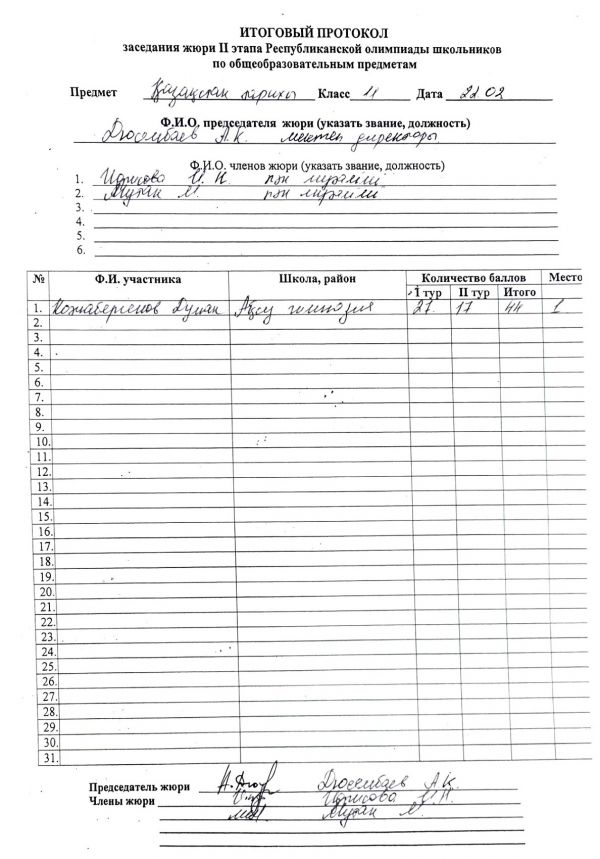 ИТОГОВЫЙ ПРОТОКОЛ
заседания жюри II этапа Республиканской олимпиады школьников
по общеобразовательным предметам
Предмет Қазақстан тарихы Класс 11 Дата 22 02
Ф.И.О. председателя жюри (указать звание, должность)
Дюсембаев А.К. мектеп директоры
Ф.И.О. членов жюри (указать звание, должность)
1. Идрисова И. К. пән мұғалімі
2. Мұқан М. пән мұғалімі
3.
4.
5.
6.
№ Ф.И. участника Школа, район Количество баллов Место
I тур II тур Итого
1. Кожабергенов Думан Ақсу гимназия 27 17 44 1
2.
3.
4.
5.
6.
7.
8.
9.
10.
11.
12.
13.
14.
15.
16.
17.
18.
19.
20.
21.
22.
23.
24.
25.
26.
27.
28.
29.
30.
31.
Председатель жюри Дюсембаев А.К.
Члены жюри Идрисова
Мұқан М.